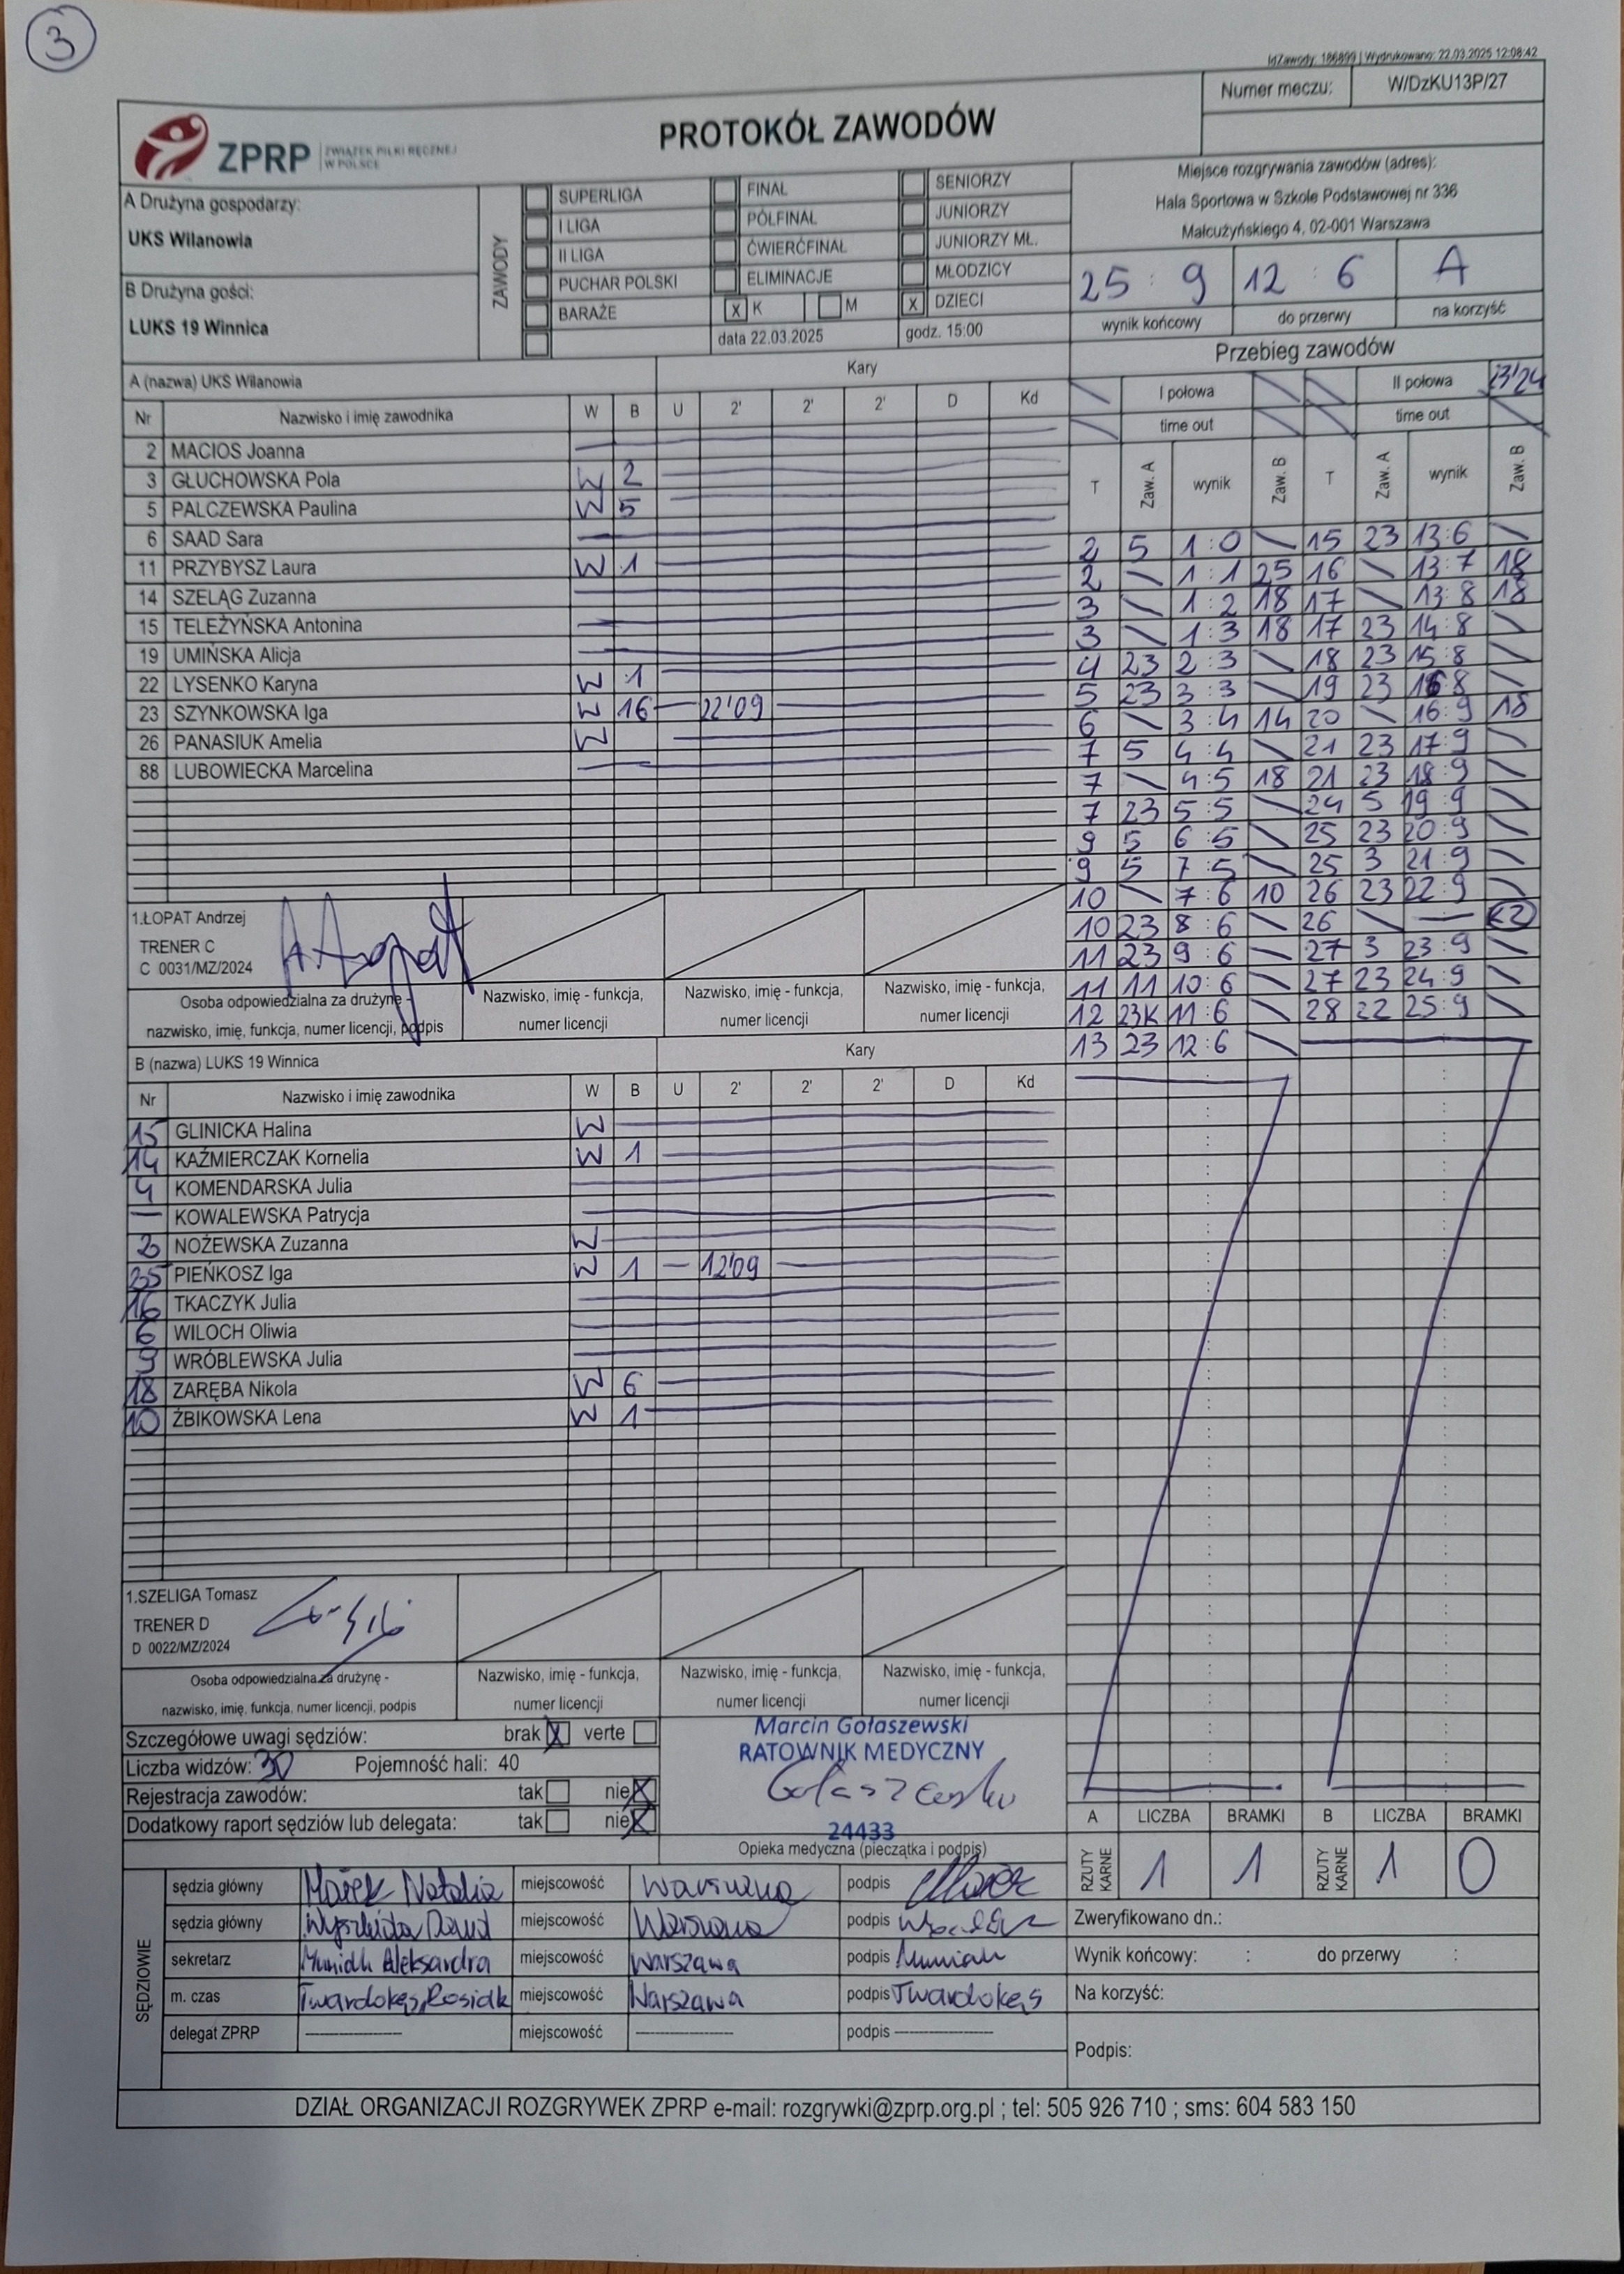 3
IdZawody: 186899 | Wydrukowano: 22.03.2025 12:08:42
Numer meczu: W/DzKU13P/27
ZPRP ZWIĄZEK PIŁKI RĘCZNEJ
W POLSCE
PROTOKÓŁ ZAWODÓW
Miejsce rozgrywania zawodów (adres):
Hala Sportowa w Szkole Podstawowej nr 336
Małcużyńskiego 4, 02-001 Warszawa
A Drużyna gospodarzy:
UKS Wilanowia
B Drużyna gości:
LUKS 19 Winnica
ZAWODY
SUPERLIGA FINAŁ SENIORZY
I LIGA PÓŁFINAŁ JUNIORZY
II LIGA ĆWIERĆFINAŁ JUNIORZY MŁ.
PUCHAR POLSKI ELIMINACJE MŁODZICY
BARAŻE X K M X DZIECI
data 22.03.2025 godz. 15:00
25 : 9 12 : 6 A
wynik końcowy do przerwy na korzyść
Przebieg zawodów
A (nazwa) UKS Wilanowia Kary
Nr Nazwisko i imię zawodnika W B U 2' 2' 2' D Kd
2 MACIOS Joanna
3 GŁUCHOWSKA Pola W 2
5 PALCZEWSKA Paulina W 5
6 SAAD Sara
11 PRZYBYSZ Laura W 1
14 SZELĄG Zuzanna
15 TELEŻYŃSKA Antonina
19 UMIŃSKA Alicja
22 LYSENKO Karyna W 1
23 SZYNKOWSKA Iga W 16 — 22'09
26 PANASIUK Amelia W
88 LUBOWIECKA Marcelina
I połowa II połowa 23'24
time out time out
T Zaw. A wynik Zaw. B T Zaw. A wynik Zaw. B
2 5 1:0 \ 15 23 13:6 \
2 \ 1:1 25 16 \ 13:7 18
3 \ 1:2 18 17 \ 13:8 18
3 \ 1:3 18 17 23 14:8 \
4 23 2:3 \ 18 23 15:8 \
5 23 3:3 \ 19 23 16:8 \
6 \ 3:4 14 20 \ 16:9 18
7 5 4:4 \ 21 23 17:9 \
7 \ 4:5 18 21 23 18:9 \
7 23 5:5 \ 24 5 19:9 \
9 5 6:5 \ 25 23 20:9 \
9 5 7:5 \ 25 3 21:9 \
10 \ 7:6 10 26 23 22:9 \
10 23 8:6 \ 26 \ —
11 23 9:6 \ 27 3 23:9 \
11 11 10:6 \ 27 23 24:9 \
12 23K 11:6 \ 28 22 25:9 \
13 23 12:6 \
1.ŁOPAT Andrzej
TRENER C
C 0031/MZ/2024
Osoba odpowiedzialna za drużynę - Nazwisko, imię - funkcja, Nazwisko, imię - funkcja, Nazwisko, imię - funkcja,
nazwisko, imię, funkcja, numer licencji, podpis numer licencji numer licencji numer licencji
B (nazwa) LUKS 19 Winnica Kary
Nr Nazwisko i imię zawodnika W B U 2' 2' 2' D Kd
15 GLINICKA Halina W
14 KAŹMIERCZAK Kornelia W 1
4 KOMENDARSKA Julia
— KOWALEWSKA Patrycja
2 NOŻEWSKA Zuzanna W
25 PIEŃKOSZ Iga W 1 — 12'09
16 TKACZYK Julia
6 WILOCH Oliwia
9 WRÓBLEWSKA Julia
18 ZARĘBA Nikola W 6
10 ŻBIKOWSKA Lena W 1
1.SZELIGA Tomasz
TRENER D
D 0022/MZ/2024
Osoba odpowiedzialna za drużynę - Nazwisko, imię - funkcja, Nazwisko, imię - funkcja, Nazwisko, imię - funkcja,
nazwisko, imię, funkcja, numer licencji, podpis numer licencji numer licencji numer licencji
Szczegółowe uwagi sędziów: brak X verte
Liczba widzów: 30 Pojemność hali: 40
Rejestracja zawodów: tak nie X
Dodatkowy raport sędziów lub delegata: tak nie X
Marcin Gołaszewski
RATOWNIK MEDYCZNY
24433
Opieka medyczna (pieczątka i podpis)
A LICZBA BRAMKI B LICZBA BRAMKI
RZUTY KARNE 1 1 RZUTY KARNE 1 0
SĘDZIOWIE
sędzia główny Marek Natalia miejscowość Warszawa podpis
sędzia główny miejscowość Warszawa podpis
sekretarz Aleksandra miejscowość Warszawa podpis
m. czas Twardokęs, Rosiak miejscowość Warszawa podpis Twardokęs
delegat ZPRP miejscowość podpis
Zweryfikowano dn.:
Wynik końcowy: : do przerwy :
Na korzyść:
Podpis:
DZIAŁ ORGANIZACJI ROZGRYWEK ZPRP e-mail: rozgrywki@zprp.org.pl ; tel: 505 926 710 ; sms: 604 583 150